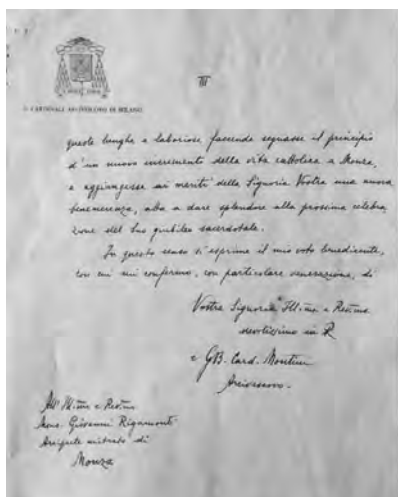 III
IL CARDINALE ARCIVESCOVO DI MILANO
queste lunghe e laboriose faccende segnasse il principio
d'un nuovo incremento della vita cattolica a Monza,
e aggiungesse ai meriti della Signoria Vostra una nuova
benemerenza, atta a dare splendore alla prossima celebra
zione del Suo giubileo sacerdotale.
In questo senso si esprime il mio voto benedicente,
con cui mi confermo, con particolare venerazione, di
Vostra Signoria Ill.ma e Rev.ma
devotissimo in
+ GB. Card. Montini
Arcivescovo.
All' Ill.mo e Rev.mo
Mons. Giovanni Rigamonti
Arciprete mitrato di
Monza